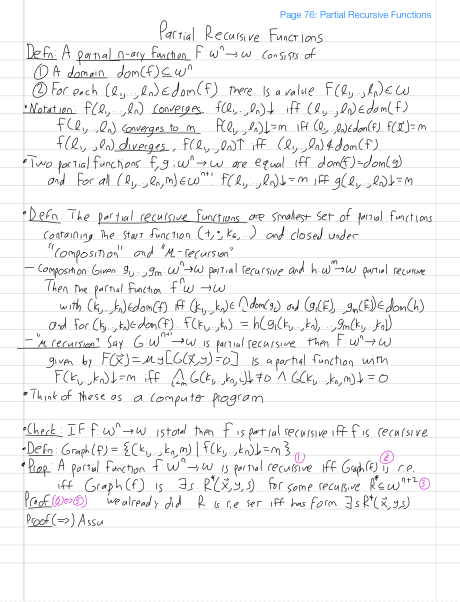 Page 76: Partial Recursive Functions
Partial Recursive Functions
Defn: A partial n-ary function F: ω^n → ω consists of
① A domain dom(f) ⊆ ω^n
② For each (l₁,..., lₙ) ∈ dom(f) there is a value F(l₁,..., lₙ) ∈ ω
• Notation: f(l₁,..., lₙ) converges f(l₁,..., lₙ)↓ iff (l₁,..., lₙ) ∈ dom(f)
f(l₁,..., lₙ) converges to m f(l₁,..., lₙ)↓=m iff (l₁,..., lₙ) ∈ dom(f) f(l⃗)=m
f(l₁,..., lₙ) diverges, f(l₁,..., lₙ)↑ iff (l₁,..., lₙ) ∉ dom(f)
• Two partial functions f, g: ω^n → ω are equal iff dom(f)=dom(g)
and for all (l₁,..., lₙ, m) ∈ ω^{n+1} f(l₁,..., lₙ)↓=m iff g(l₁,..., lₙ)↓=m
• Defn: The partial recursive functions are smallest set of partial functions
containing the start function (+, ·, k₆, ...) and closed under
"composition" and "μ-recursion"
– Composition: Given g₁,..., gₘ: ω^n → ω partial recursive and h: ω^m → ω partial recursive
Then the partial function f: ω^n → ω
with (k₁,..., kₙ) ∈ dom(f) iff (k₁,..., kₙ) ∈ ⋂ dom(gᵢ) and (g₁(k⃗),..., gₘ(k⃗)) ∈ dom(h)
and for (k₁,..., kₙ) ∈ dom(f). f(k₁,..., kₙ) = h(g₁(k₁,..., kₙ),..., gₘ(k₁,..., kₙ))
– "μ recursion" Say G: ω^{n+1} → ω is partial recursive then F: ω^n → ω
given by F(x⃗)=μy[G(x⃗,y)=0] is a partial function with
F(k₁,..., kₙ)↓=m iff ⋀_{i<m} G(k₁,..., kₙ, i)↓≠0 ∧ G(k₁,..., kₙ, m)↓=0
• Think of these as a computer program
• Check: IF f: ω^n → ω is total then f is partial recursive iff f is recursive
• Defn: Graph(f) = {(k₁,..., kₙ, m) | f(k₁,..., kₙ)↓=m}
• Prop: A partial function f: ω^n → ω is partial recursive ① iff Graph(f) is r.e. ②
iff Graph(f) is ∃s R*(x⃗,y,s) for some recursive R* ⊆ ω^{n+2} ③
Proof (②⇔③) we already did R is r.e. set iff has form ∃s R*(x⃗,y,s)
Proof (⇒) Assu